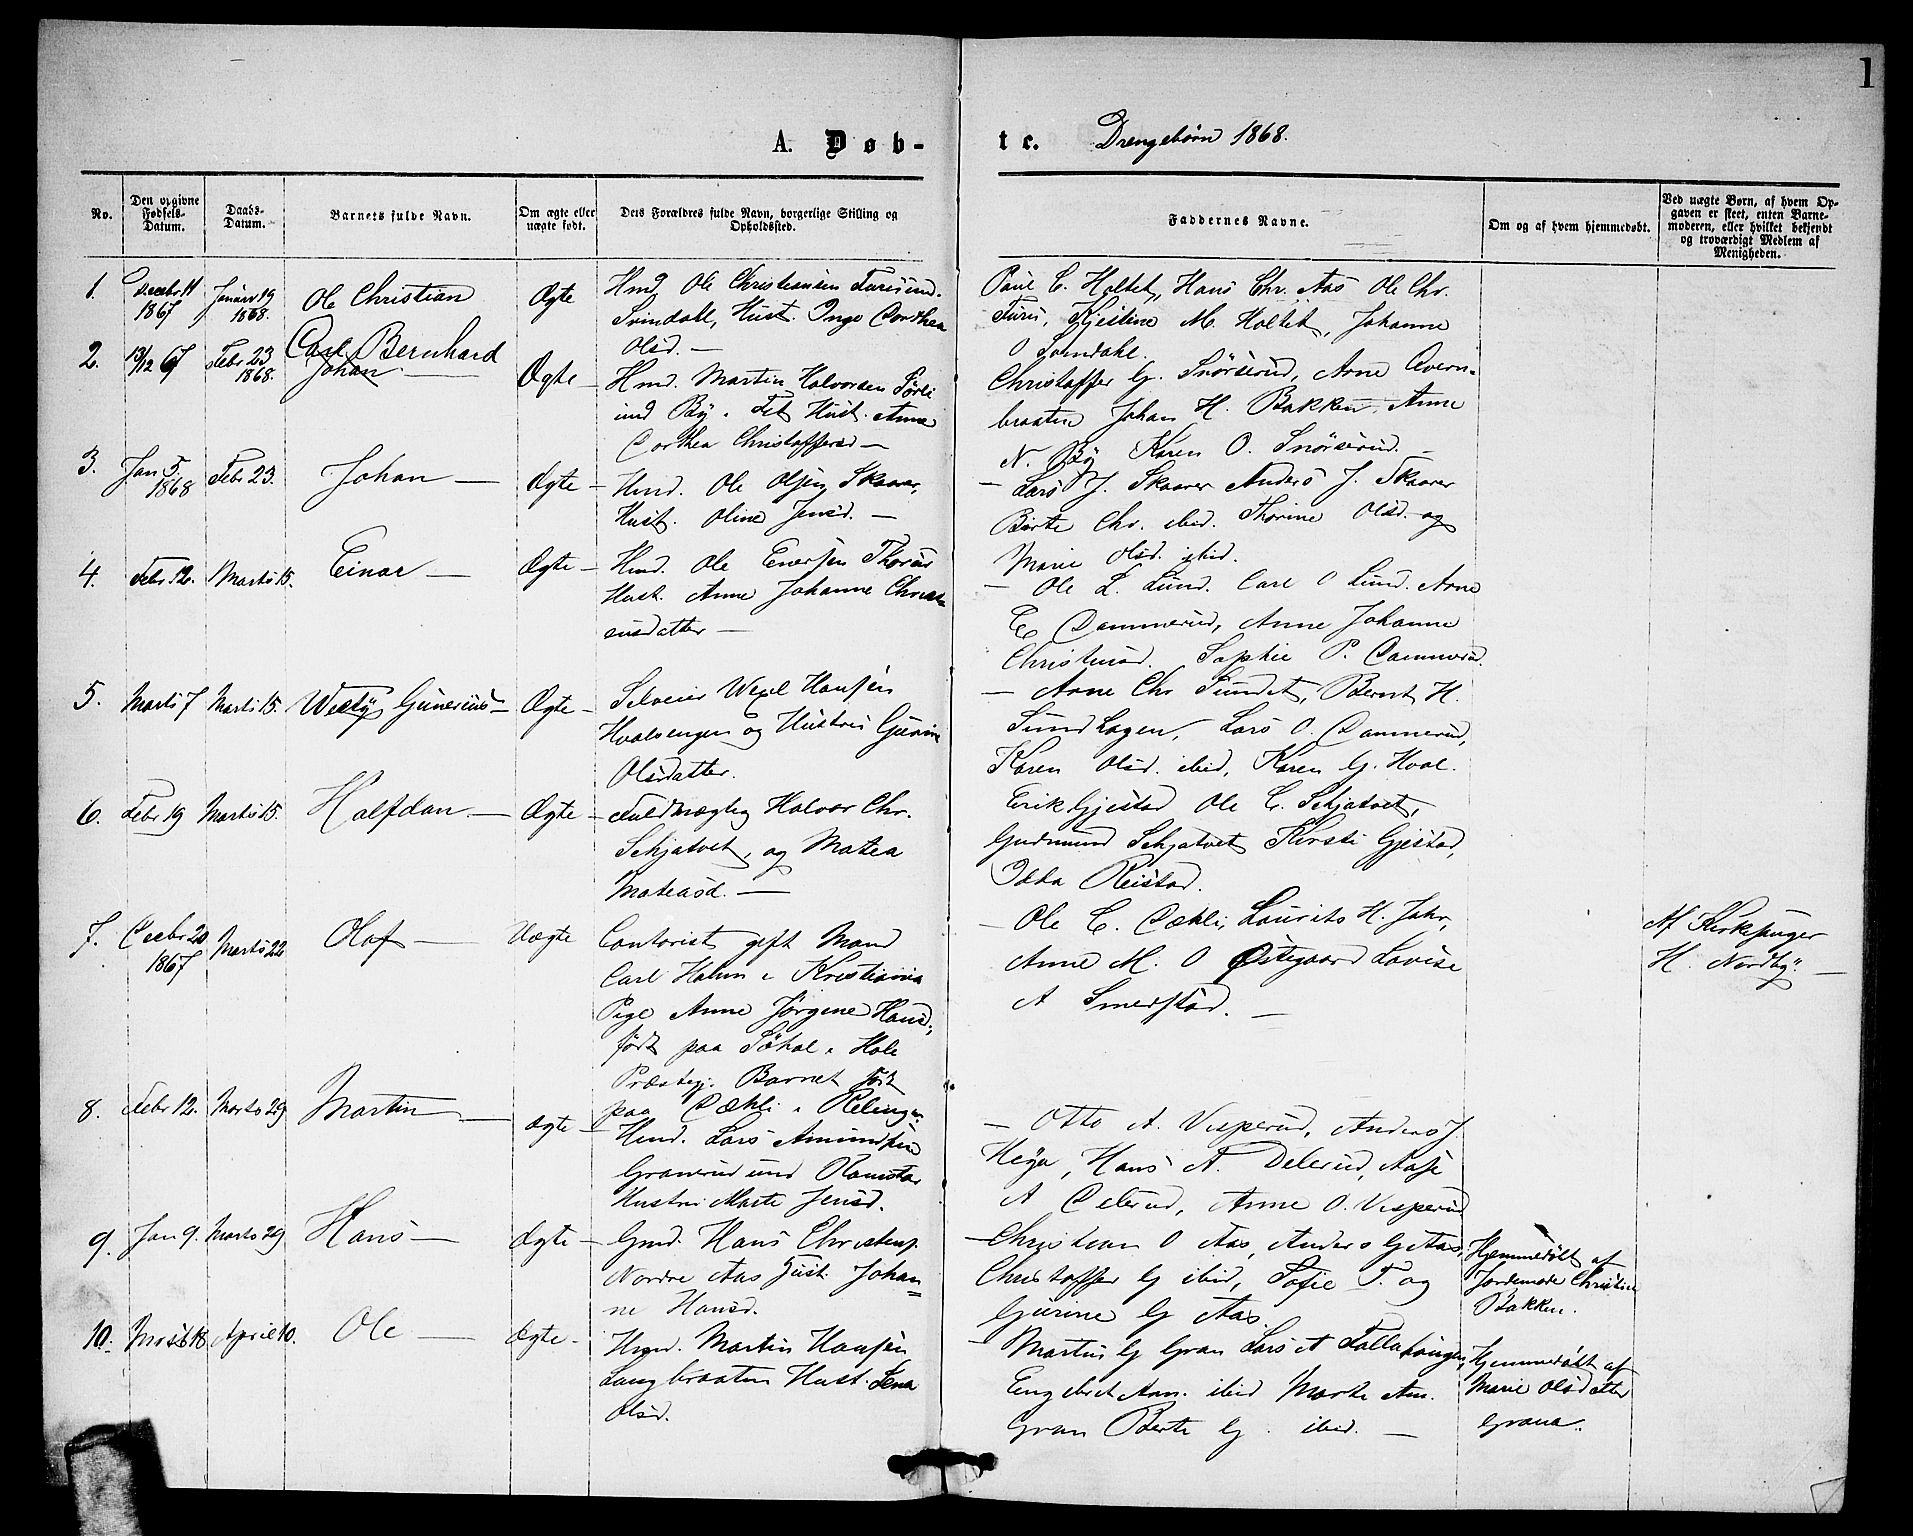 1
A. Døb-
te.
Drengebørn 1868.
No.
Den opgivne Fødsels-Datum.
Daabs-Datum.
Barnets fulde Navn.
Om ægte eller uægte født.
Dets Forældres fulde Navn, borgerlige Stilling og Opholdssted.
Faddernes Navne.
Om og af hvem hjemmedøbt.
Ved uægte Børn, af hvem Op-
gaven er skeet, enten Barne-
moderen, eller hvilket bekjendt
og troværdigt Medlem af
Menigheden.
1.
Decebr 11
1867
Januar 19
1868.
Ole Christian
Ægte
Hmd Ole Christiansen
Svindahl, Hust. Inge Dorthea
Olsd. —
Paul C. Holtet, Hans Chr. Aas Ole Chr.
Furu, Kjestine M. Holtet, Johanne
O Svindahl.
2.
13/12 67
Febr 23
1868.
Carl Bernhard
Johan —
Ægte —
Hmd. Martin Halvorsen
und By i Fet Hust. Anne
Dorthea Christoffersd —
Christoffer G. Snørserud, Arne
braaten Johan H. Bakken, Anne
N. By Karen O. Snørserud. —
3.
Jan 5.
1868
Febr 23.
Johan —
Ægte —
Hmd. Ole Olsen Skaarer,
Hust. Oline Jensd. —
— Lars J. Skaarer Anders J. Skaarer
Birte Chr. ibid. Thorine Olsd. og
Marie Olsd. ibid.
4.
Febr 12.
Marts 15.
Einar —
Ægte —
Hmd. Ole Enersen
Hust. Anne Johanne Christi-
ensdatter —
— Ole L. Lund. Carl O Lund. Arne
E Dammerud, Anne Johanne
Christensd. Sophie P. Dammerud.
5.
Marts 7
Marts 15.
Gunerius —
Ægte —
Wexel Hansen
Hvalsengen og Hustru Gurine
Olsdatter.
— Arne Chr Sundet, Bernt H.
Sundhagen, Lars O. Dammerud,
Karen Olsd. ibid, Karen G. Hval.
6.
Febr 19
Marts 15.
Halfdan —
Ægte —
Fuldmægtig Halvor Chr.
Schjatvet, og Matea
Mateasd. —
Erik Gjestad Ole C. Schjatvet,
Gudmund Schjatvet Kirsti Gjestad,
Reistad.
7.
Decbr 20
1867
Marts 22
Olaf —
Uægte
Contorist gift Mand
Carl Holm i Kristiania
Pige Anne Jørgine Hansd,
født paa i Hole
Præstegj. Barnet født
paa Dæhli i Relingen
— Ole C. Dæhli, Laurits H. Jahr,
Anne M. O Østgaard Lovise
A Smerstad. —
Af Kirkesanger
H. Nordby. —
8.
Febr 12.
Marts 29
Martin —
Ægte —
Hmd. Lars Amundsen
Granerud und Ramstad
Hustru Marte Jensd.
— Otto A. Visperud, Anders J.
Heja, Hans A. Delerud, Aase
A Delerud, Anne O. Visperud
9.
Jan 9.
Marts 29
Hans —
Ægte —
Gmd. Hans Christensen
Nordre Aas Hust. Johan=
ne Hansd.
— Christian O Aas, Anders G Aas,
Christoffer G ibid, Sofie T. og
Gurine G Aas.
Hjemmedøbt af
Jordemoder Christine
Bakken.
10.
Marts 18
April 10.
Ole —
Ægte —
Hmd. Martin Hansen
Langbraaten Hust. Lena
Olsd.
— Martin G Gran Lars A
Engebret Am. ibid Marthe Am.
Gran Berte G. ibid. —
Hjemmedøbt af
Marie Olsdatter
Grana.